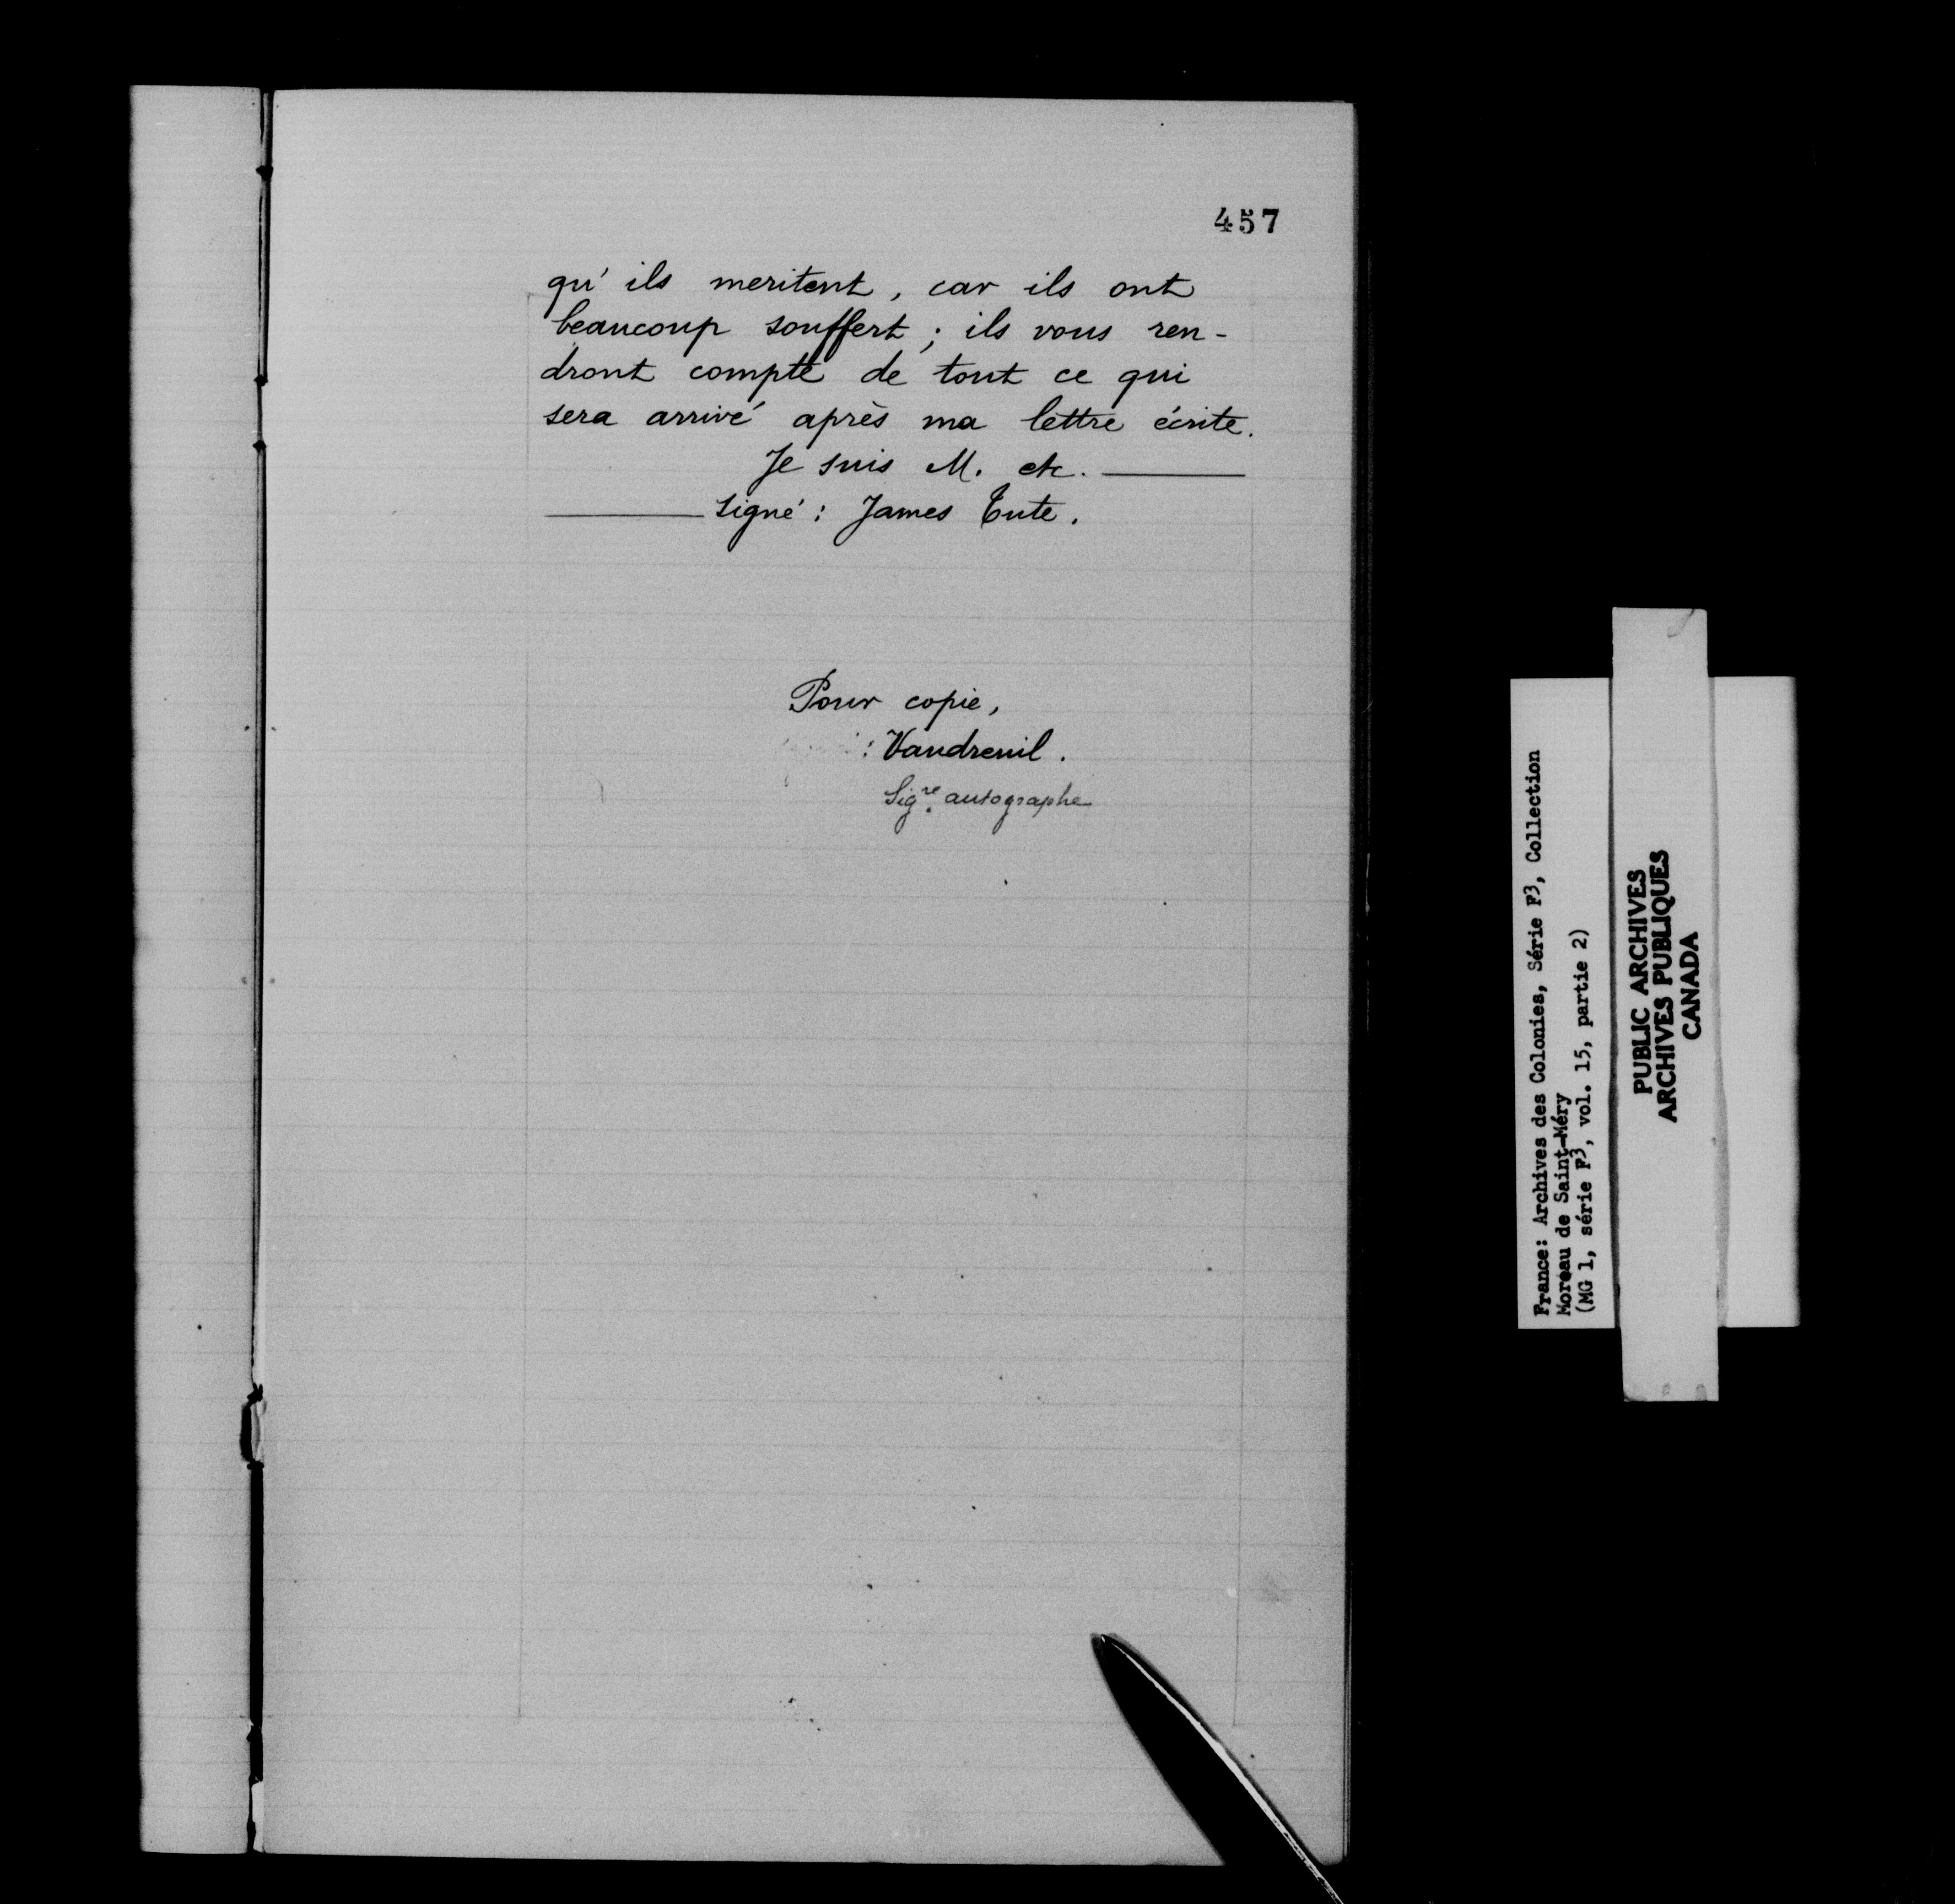 457
qu'ils meritent, car ils ont
beaucoup souffert; ils vous ren-
dront compte de tout ce qui
sera arrivé après ma lettre écrite.
Je suis M. etc.
signé: James Tute.
Pour copie,
: Vaudreuil.
Sigre autographe
France: Archives des Colonies, Série F3, Collection
Moreau de Saint-Méry
(MG 1, série F3, vol. 15, partie 2)
PUBLIC ARCHIVES
ARCHIVES PUBLIQUES
CANADA